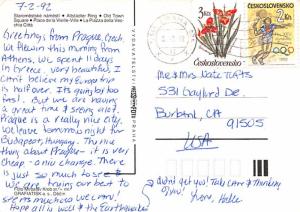 7-2-92
Staroměstské náměstí - Altstädter Ring - Old Town
Square - Place de la Vieille-Ville - La Piazza della Vec-
chia Città
Greetings from Prague, Czech.
We flew in this morning from
Athens. We spent 11 days
in Greece, very beautiful, I
can't believe my trip
is half over. It's going by too
fast. But we are having
a great time & seeing a lot.
Prague is a really nice city,
we leave tomorrow night for
Budapest, Hungary. The nice
thing about Prague - it is very
cheap - a nice change. There
is just so much to see &
we are training our best to
see as much as we can!
Hope all is well & the Earthquake
didn't get you! Take care & thinking
of you!
Love,
3 Kčs
ČESKOSLOVENSKO
ČESKOSLOVENSKO
Mr & Mrs Nate
531 Gaylord De.
Burbank, CA
91505
USA